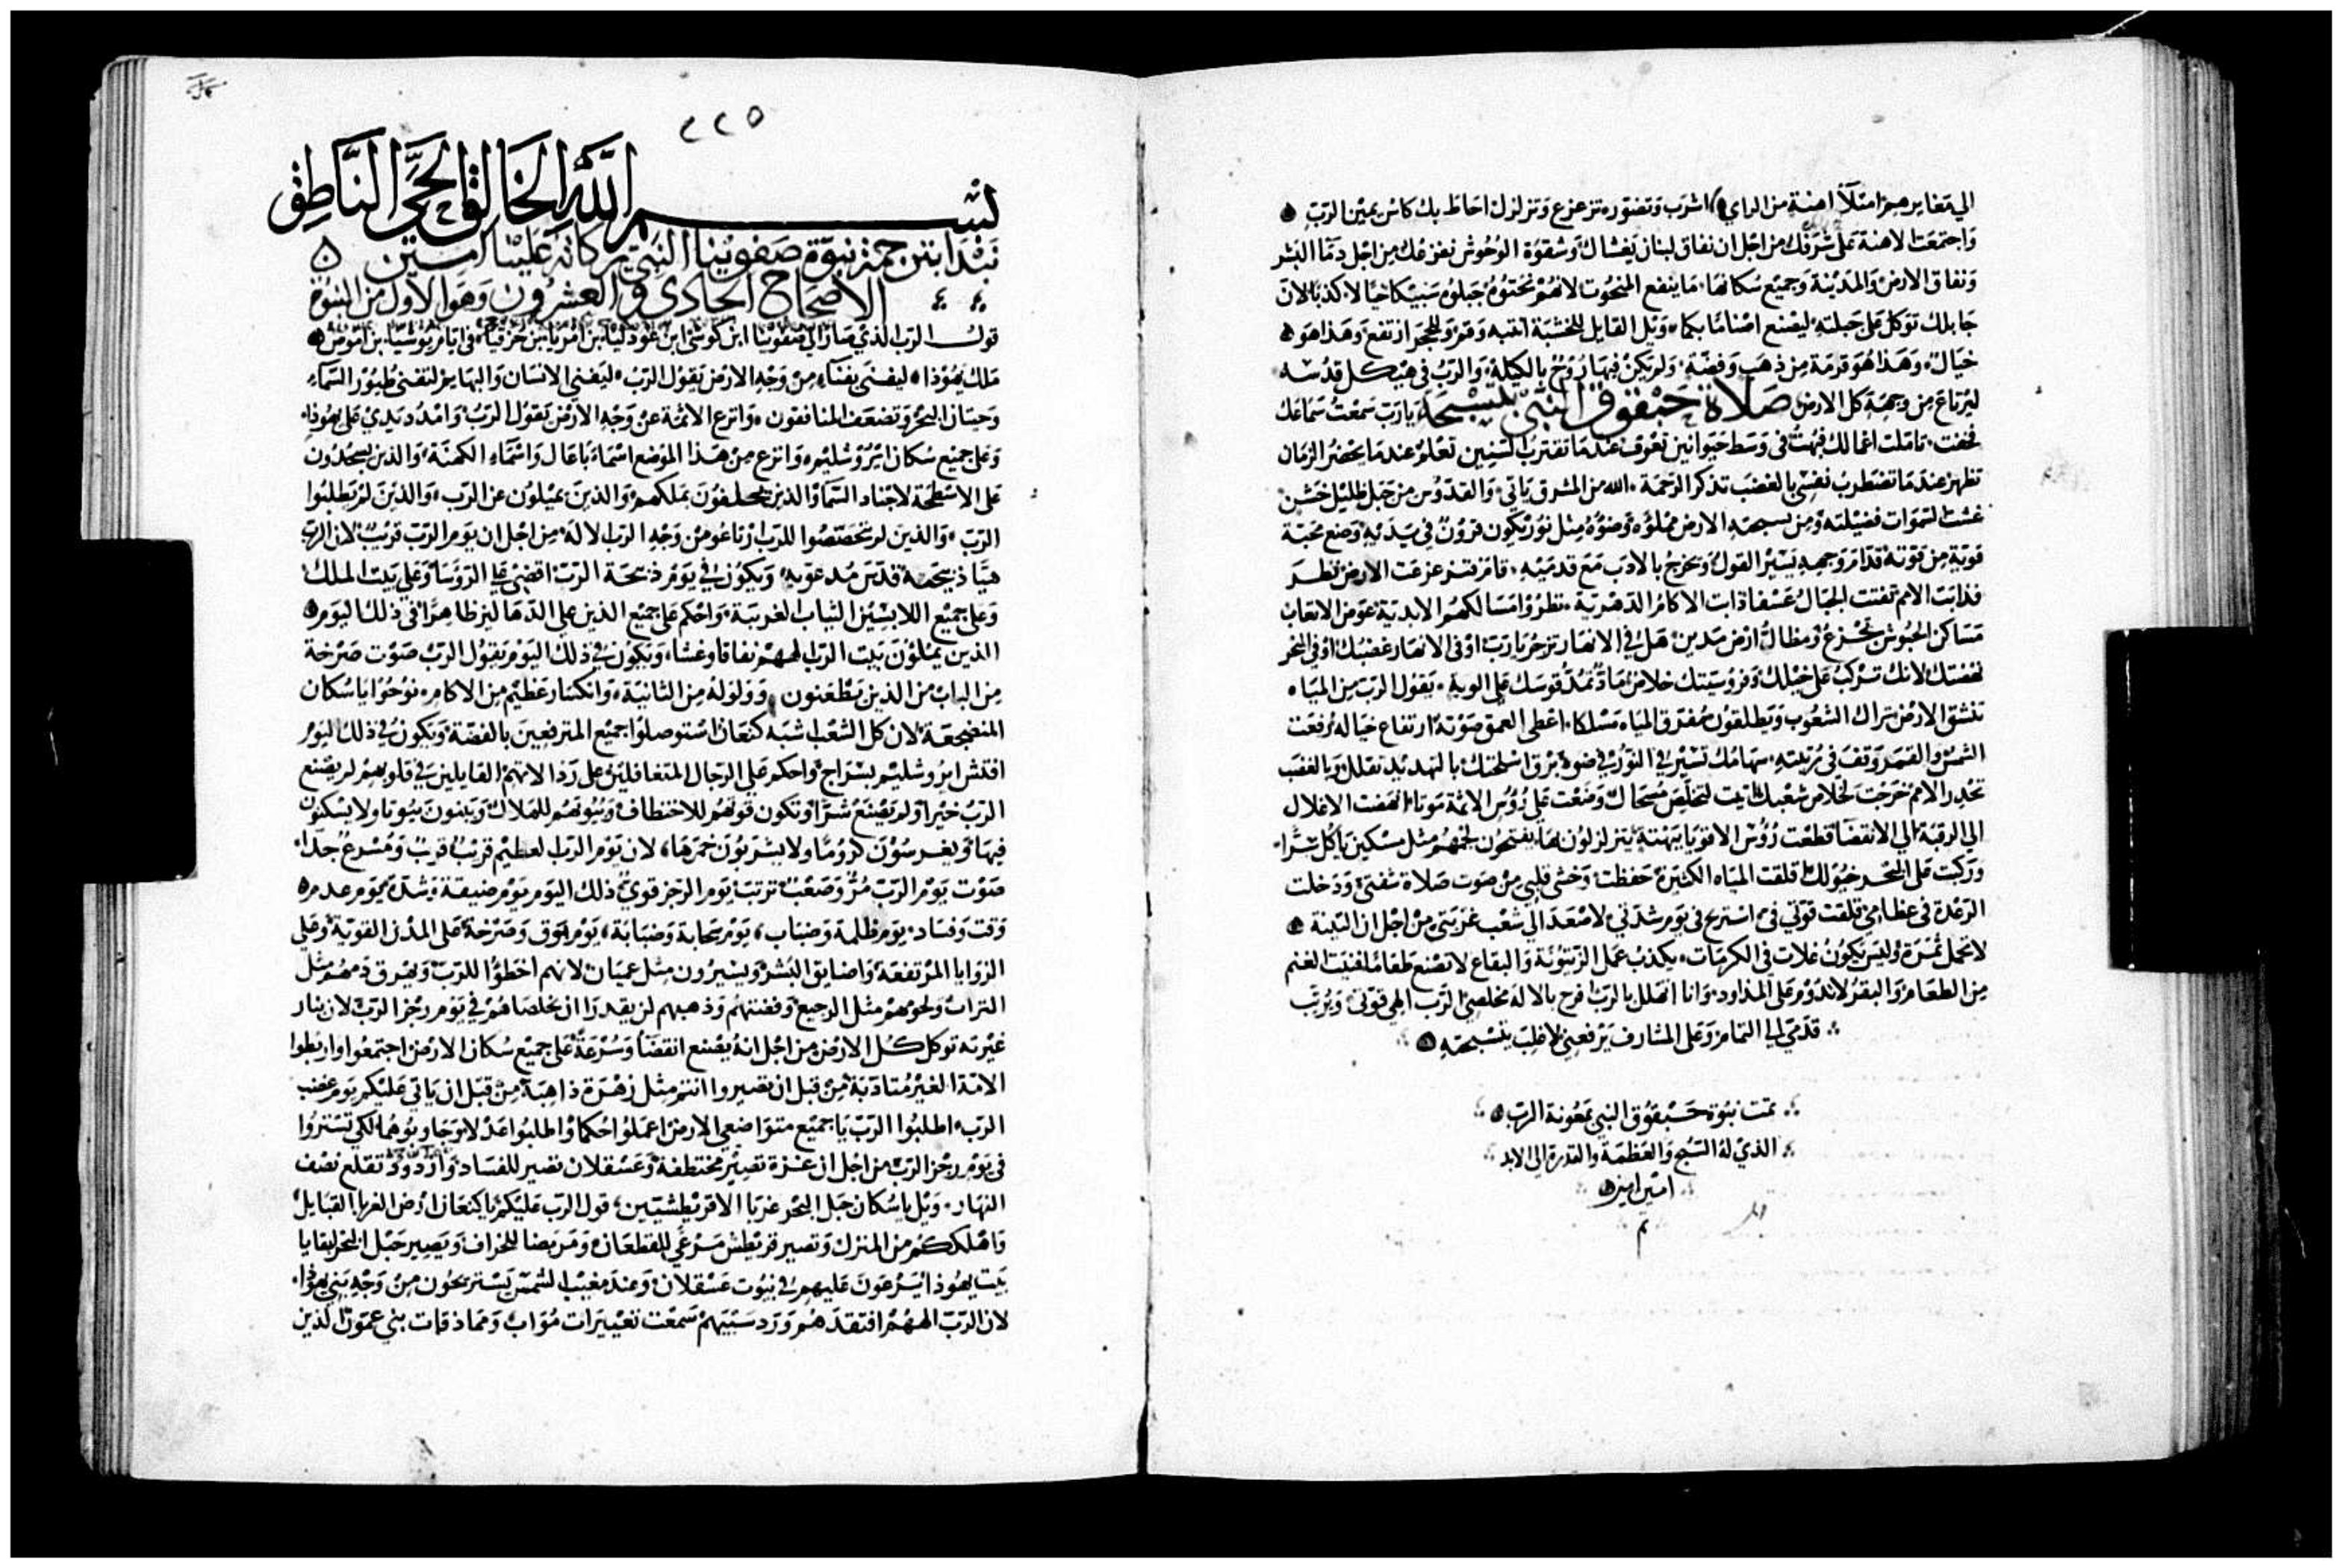 الي مغايرهم امتلأ اهنة من الراي اشرب وتضوره تزعزع وتزلزل احاط بك كاس يمين الرب
واجتمعت الاهنة على شرفك من اجل ان نفاق لبنان يغشاك وشقوة الوحوش تفزعك من اجل دما البشر
ونفاق الارض والمدينة وجميع سكانها ما ينفع المنحوت لانهم نحتوه جبلوه سبيكا خيالا كذبا لان
جابلك توكل على جبلته ليصنع اصناما بكما ويل القايل للخشبة انتبه وقم وللحجر ارتفع وهذا هو
خيال وهذا هو قرمة من ذهب وفضة ولم يكن فيها روح بالكيلة والرب في هيكل قدسه
ليرتاع من وجهه كل الارض صلاة حبقوق النبي بتسبحة يا رب سمعت سماعك
فخفت تاملت اعمالك فبهت في وسط حيوانين تعرف عندما تقترب السنين تعلم عندما يحضر الزمان
تظهر عندما تضطرب نفسي بالغضب تذكر الرحمة الله من المشرق ياتي والقدوس من جبل ظليل خشن
غشت السموات فضيلته ومن تسبحته الارض مملؤه وضوه مثل نور يكون قرون في يديه وضع محبة
قوية من قوته قدام وجهه يسير القول ويخرج بالادب مع قدميه قام فتزعزعت الارض نظر
فذابت الامم تفتت الجبال عسفا ذات الاكام الدهرية نظروا مسالكهم الابدية عوض الاتعاب
مساكن الحبوش تجزع ومظال ارض مدين هل في الانهار تزجر يا رب او في الانهار غضبك او في البحر
نهضتك لانك تركب على خيلك وفروسيتك خلاص مادا تمد قوسك على الوية يقول الرب من المياه
تنشق الارض تراك الشعوب ويطلقون مفترق المياه مسلكا اعطى العمق صوته ارتفاع خياله رفعت
الشمس والقمر وقف في رتبته سهامك تسير في النور في ضوء برق اسلحتك بالتهديد تقلل وبالغضب
تحدر الامم خرجت لخلاص شعبك اتيت لتخلص مسحاك وضعت على رؤس الاثمة موتا انهضت الاغلال
الي الرقبة الي الانقضا قطعت رؤس الاقويا يبهتة يتزلزلون بها يفتحون لجمهم مثل مسكين ياكل سرا
وركبت على البحر خيولك اقلقت المياه الكثيرة حفظت وخشي قلبي من صوت صلاة شفتي ودخلت
الرعدة في عظامي وقلقت قوتي في استريح في يوم شدتي لاصعد الي شعب غربتي من اجل ان التينة
لا تحمل ثمرة وليس يكون غلات في الكرمات يكذب عمل الزيتونة والبقاع لا تصنع طعاما فنيت الغنم
من الطعام والبقر لا تدوم على المذاود وانا اتهلل بالرب افرح بالاله مخلصي الرب الهي قوتي ويرتب
قدمي الي التمام وعلى المشارف يرفعني لاغلب بتسبحته
تمت نبوة حبقوق النبي بمعونة الرب
الذي له التسبيح والعظمة والقدرة الي الابد
امين امين
تم
٢٢٥
بسم الله الخالق الحي الناطق
نبدا بترجمة نبوة صفونيا النبي بركاته علينا امين
الاصحاح الحادي والعشرون وهو الاول من النبوة
قول الرب الذي صار الي صفونيا ابن كوشى ابن غودليا بن امريا بن حزقيا في ايام يوشيا بن امون
ملك يهوذا ليفنى بفناء من وجه الارض يقول الرب ليفني الانسان والبهايم لتفنى طيور السماء
وحيتان البحر وتضعف المنافقون وانزع الاثمة عن وجه الارض يقول الرب وامدد يدي على يهوذا
وعلى جميع سكان ايروشليم وانزع من هذا الموضع اسماء باعال واسماء الكهنة والذين يسجدون
على الاسطحة لاجناد السما والذين يحلفون بملكهم والذين يميلون عن الرب والذين لم يطلبوا
الرب والذين لم تحتصوا للرب ارتاعو من وجه الرب الاله من اجل ان يوم الرب قريب لان الرب
هيا ذبيحته قدس مدعويه ويكون في يوم ذبيحة الرب اقضي على الروسا وعلى بيت الملك
وعلى جميع اللابسين الثياب الغريبة واحكم على جميع الذين على الدهاليز ظاهرا في ذلك اليوم
الذين يملون بيت الرب الههم نفاقا وغشا ويكون في ذلك اليوم يقول الرب صوت صرخة
من الباب من الذين يطعنون وولولة من الثانية وانكسار عظيم من الاكام نوحوا يا سكان
المنضجعة لان كل الشعب اشبه كنعان استوصلوا جميع المترفعين بالفضة ويكون في ذلك اليوم
افتش ايروشليم بسراج واحكم على الرجال المتغافلين على رذالاتهم القايلين في قلوبهم لم يصنع
الرب خيرا ولم يصنع شرا وتكون قوتهم للاختطاف وبيوتهم للهلاك ويبنون بيوتا ولا يسكنون
فيها ويغرسون كروما ولا يشربون خمرها لان يوم الرب العظيم قريب قريب ومسرع جدا
صوت يوم الرب مر وصعب ترتب يوم الرجز قوي ذلك اليوم يوم ضيقة وشدة يوم عدمه
وقت وفساد يوم ظلمة وضباب يوم سحابة وضبابة يوم بوق وصرخة على المدن القوية وعلى
الزوايا المرتفعة واضايق البشر ويسيرون مثل عميان لانهم اخطؤا للرب ويهرق دمهم مثل
التراب ولحومهم مثل الرجيع وفضتهم وذهبهم لن يقدرا ان يخلصاهم في يوم رجز الرب لان بنار
غيرته توكل كل الارض من اجل انه يصنع انقضا وسرعة على جميع سكان الارض اجتمعوا واربطوا
الامة الغير متادبة من قبل ان تصيروا انتم مثل زهرة ذاهبة من قبل ان ياتي عليكم يوم غضب
الرب اطلبوا الرب يا جميع متواضعي الارض اعملوا احكاما واطلبوا عدلا وجاوبوهما لكي تستروا
في يوم رجز الرب من اجل ان غزة تصير مختطفة وعسقلان تصير للفساد وازدود تقلع نصف
النهار ويل يا سكان حبل البحر غربا الاقريطشيين قول الرب عليكم يا كنعان ارض الغربا القبايل
واهلككم من المنزل وتصير قريطش مرعى للقطعان ومربضا للخراف ويصير حبل البحر لبقايا
بيت يهوذا يرعون عليهم في بيوت عسقلان وعند مغيب الشمس يستريحون من وجه بني يهوذا
لان الرب الههم افتقدهم ورد سبيهم سمعت تعييرات مواب ومماذقات بني عمون الذين